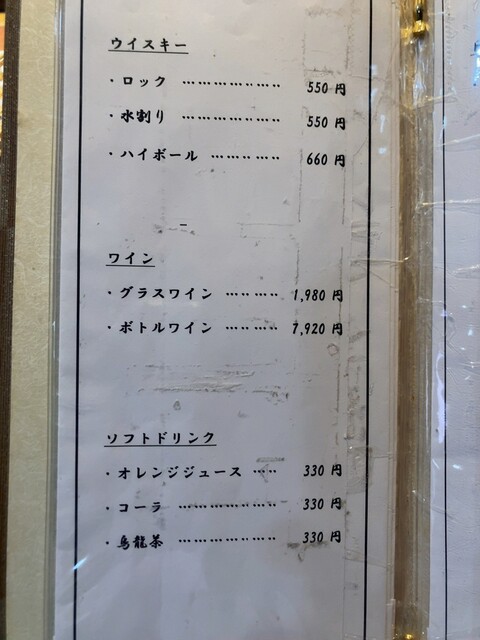 ウイスキー
・ロック ……………… 550 円
・水割り ……………… 550 円
・ハイボール ………… 660 円
ワイン
・グラスワイン ……… 1,980 円
・ボトルワイン ……… 7,920 円
ソフトドリンク
・オレンジジュース …… 330 円
・コーラ ……………… 330 円
・烏龍茶 ……………… 330 円